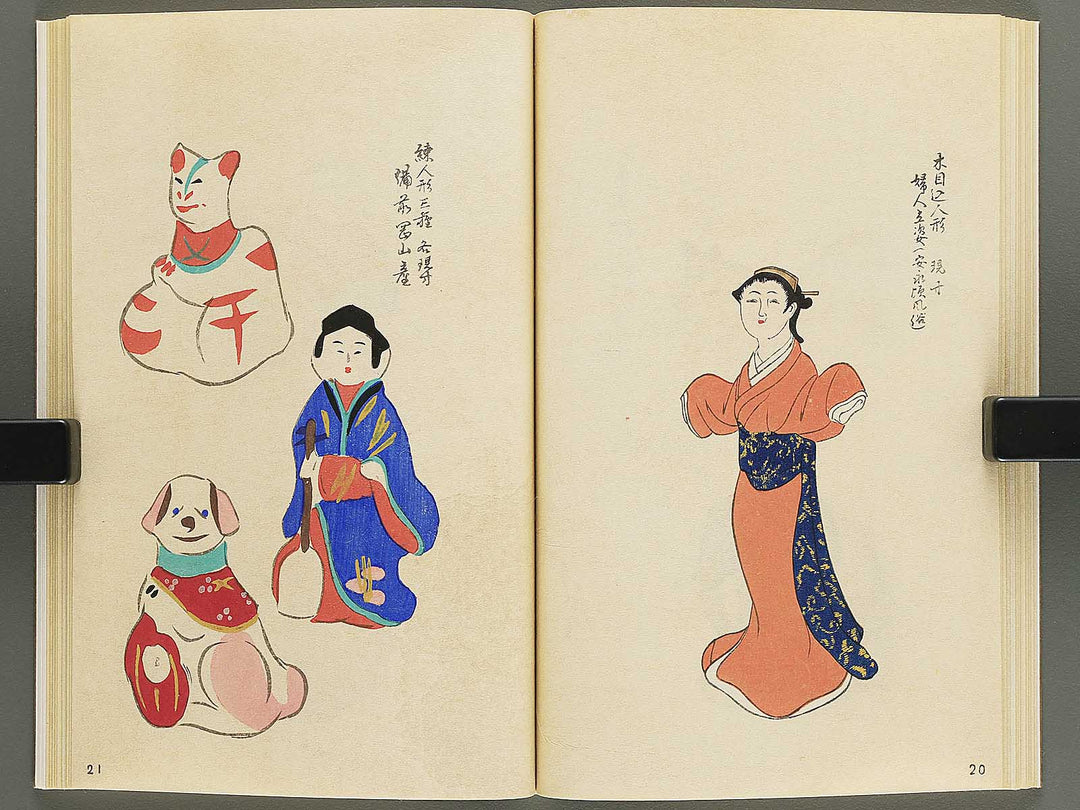 木目込人形 現寸
婦人立姿 安永頃風俗
20
練人形 三種 各現寸
備前岡山産
21